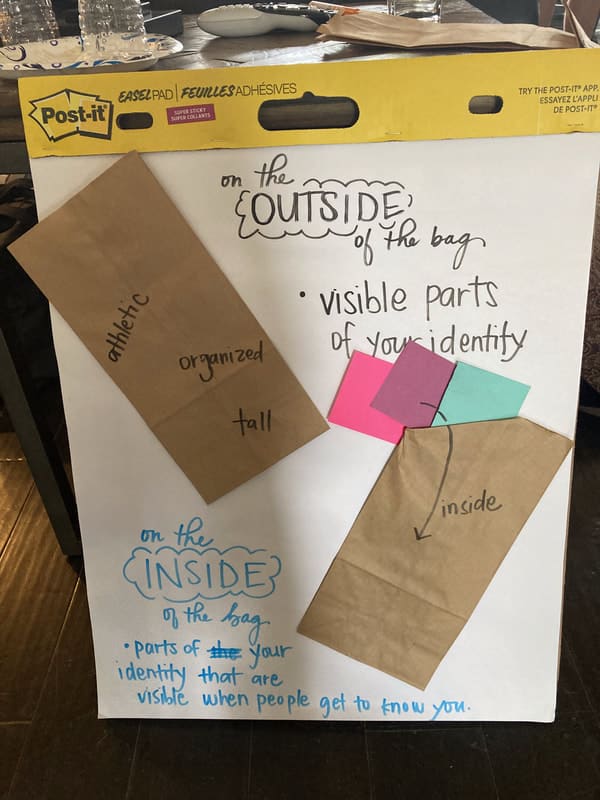 Post-it®
EASEL PAD | FEUILLES ADHÉSIVES
SUPER STICKY
SUPER COLLANTS
TRY THE POST-IT® APP.
ESSAYEZ L'APPLI
DE POST-IT®
on the
OUTSIDE
of the bag
• visible parts
of your identity
athletic
organized
tall
inside
on the
INSIDE
of the bag
• parts of the your
identity that are
visible when people get to know you.